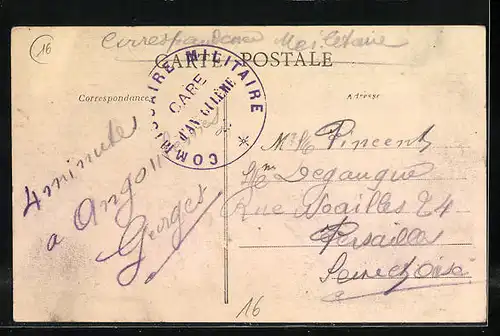 16
Correspondance Militaire
CARTE POSTALE
Correspondance
Adresse
COMMISSAIRE MILITAIRE
GARE
D'ANGOULÊME
4 minutes
a Angouleme
Georges
Mr Pincent
Degangue
Rue Noailles 24
Versailles
Seine et Oise
16